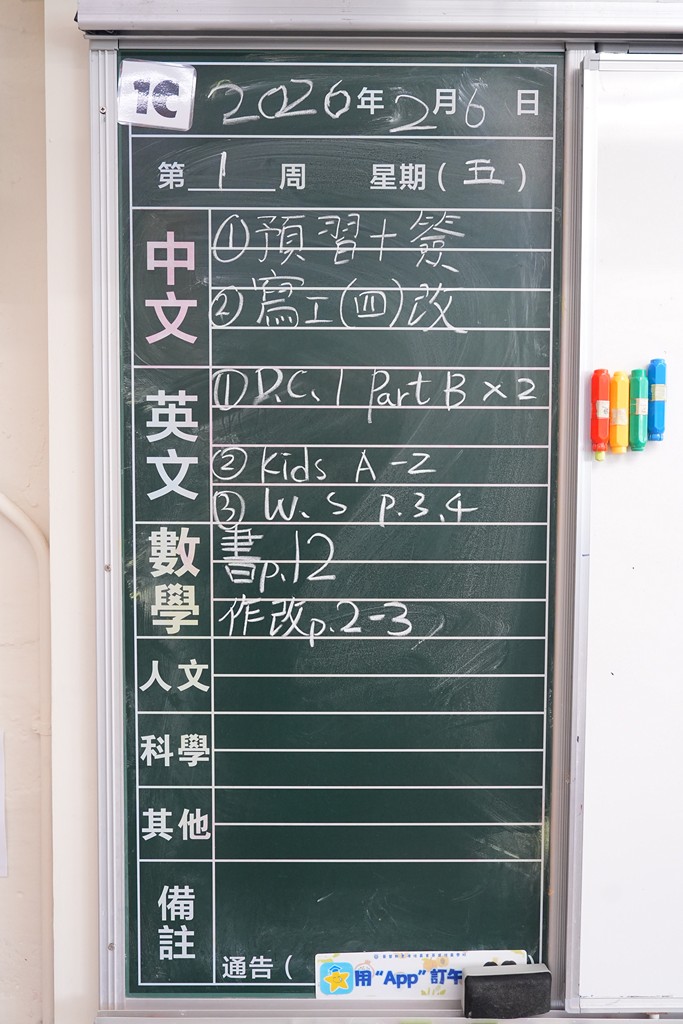 1C 2026年2月6日
第1周 星期(五)
中文
①預習+簽
②寫工(四)改
英文
①D.C.1 Part B×2
②Kids A-Z
③W.S p.3,4
數學
書p.12
作改p.2-3
人文
科學
其他
備註
通告(
用“App”訂午